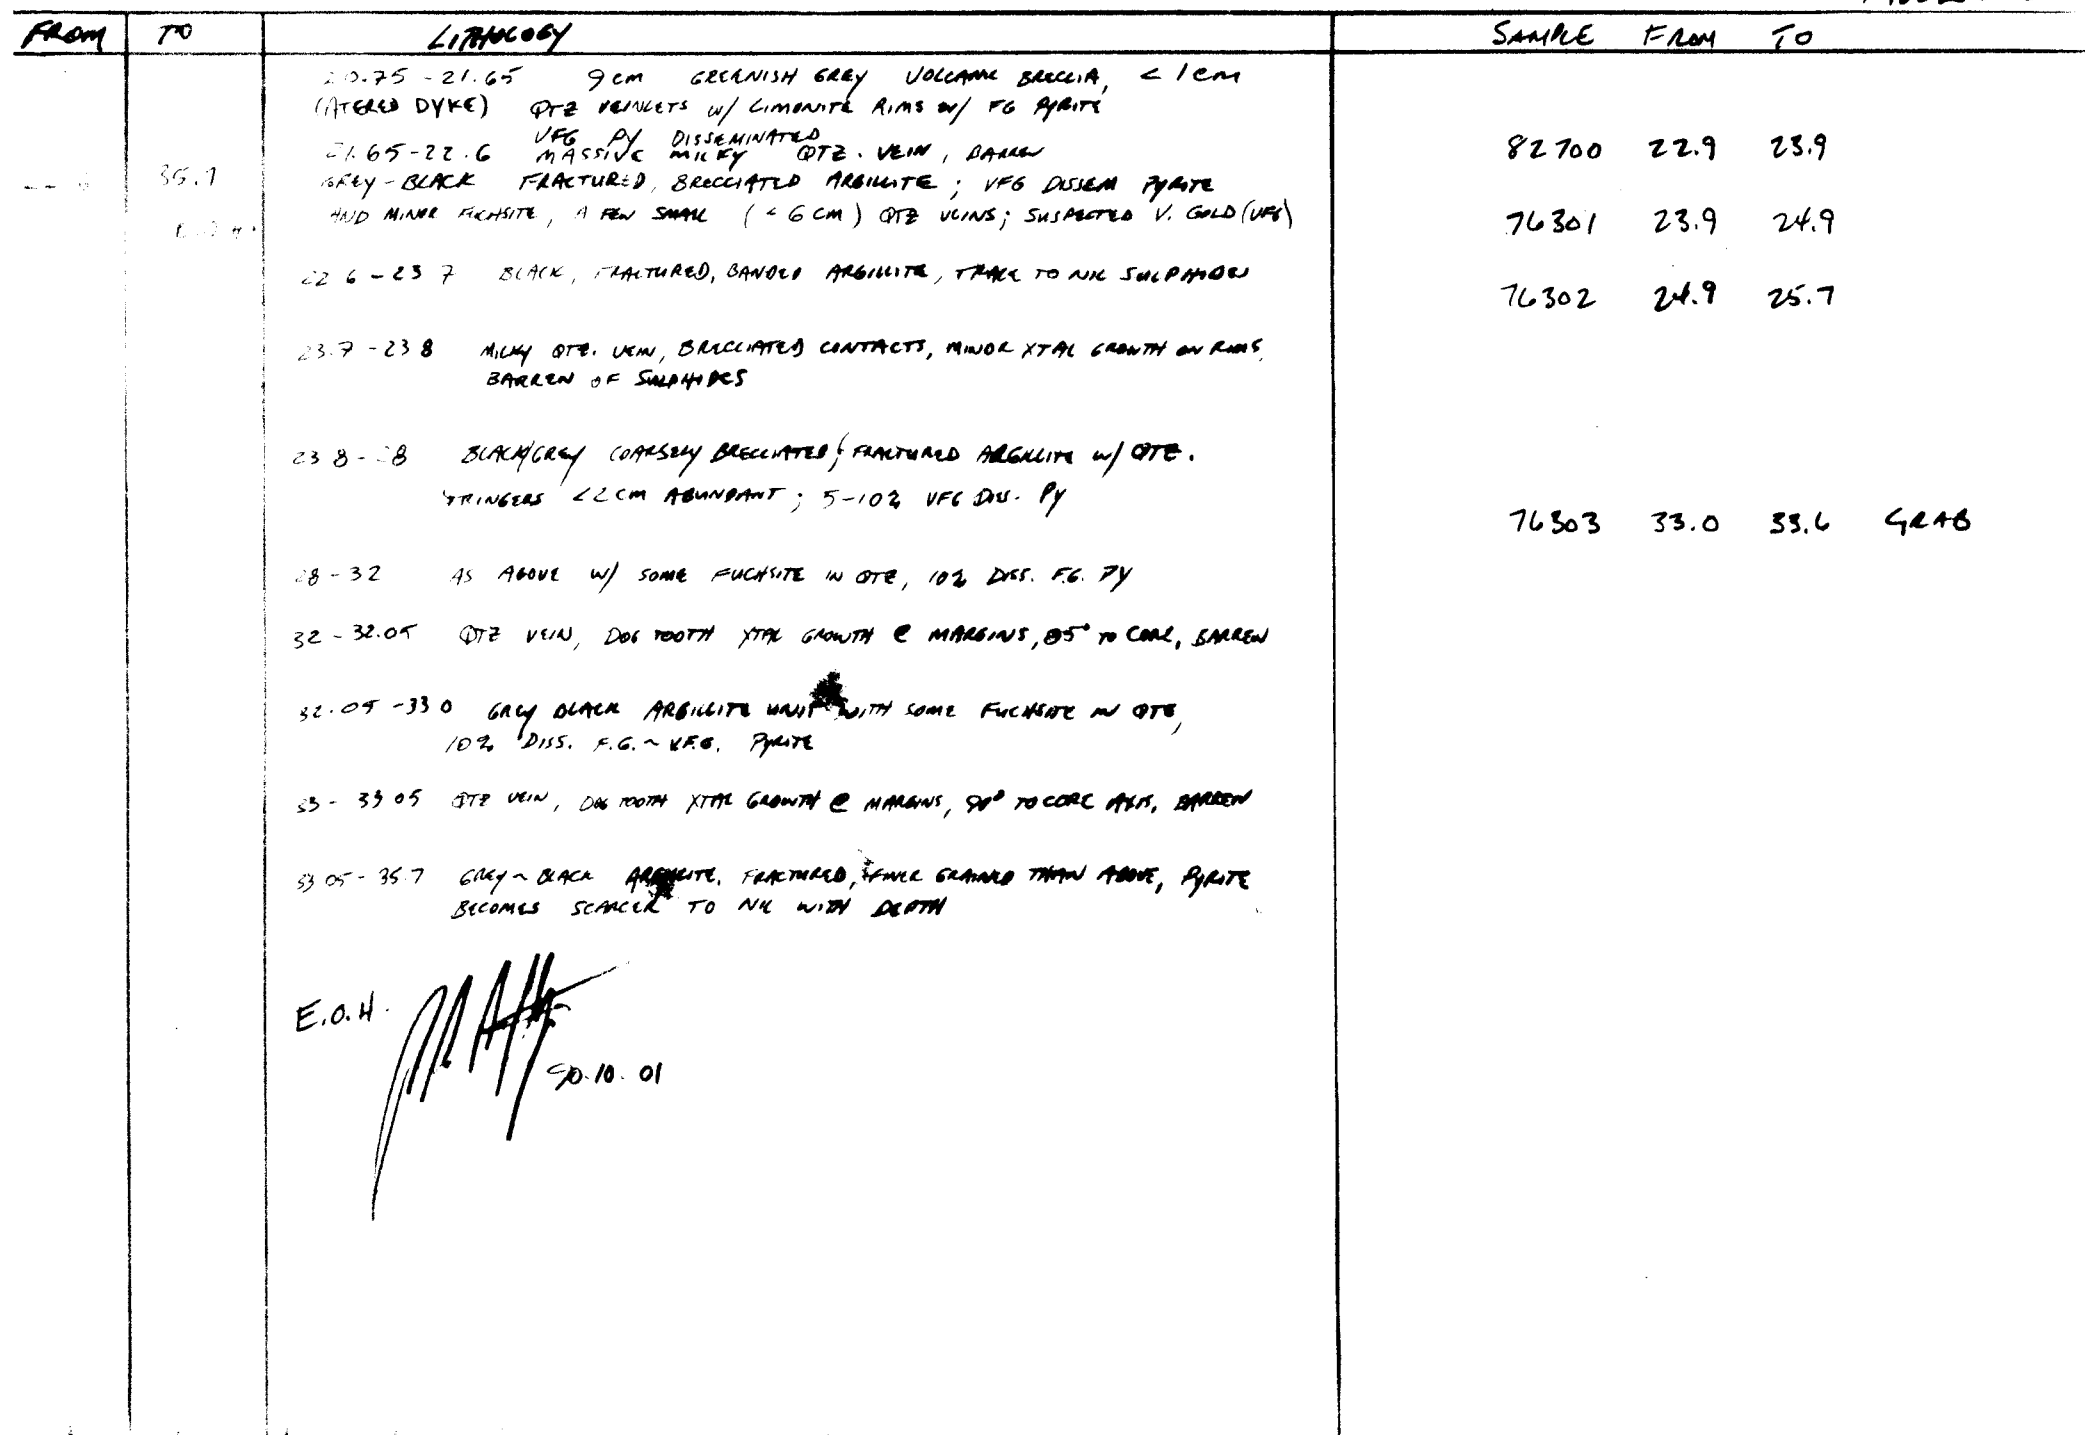 FROM TO LITHOLOGY SAMPLE FROM TO
20.75-21.65 9cm GREENISH GREY VOLCANIC BRECCIA, < 1cm
(ATERED DYKE) QTZ VEINLETS w/ LIMONITE RIMS w/ FG PYRITE
VFG PY DISSEMINATED
21.65-22.6 MASSIVE MILKY QTZ. VEIN, BARREN 82700 22.9 23.9
35.7 GREY-BLACK FRACTURED, BRECCIATED ARGILLITE; VFG DISSEM PYRITE
AND MINOR FUCHSITE, A FEW SMALL (<6CM) QTZ VEINS; SUSPECTED V. GOLD (VFG) 76301 23.9 24.9
E.O.H.
22 6-23 7 BLACK, FRACTURED, BANDED ARGILLITE, TRACE TO NIL SULPHIDES 76302 24.9 25.7
23.7-23 8 MILKY QTZ. VEIN, BRECCIATED CONTACTS, MINOR XTAL GROWTH ON RIMS,
BARREN OF SULPHIDES
23 8-28 BLACK/GREY COARSELY BRECCIATED/FRACTURED ARGILLITE w/ QTZ.
STRINGERS <2CM ABUNDANT; 5-10% VFG DISS. PY
76303 33.0 33.6 GRAB
28-32 AS ABOVE w/ SOME FUCHSITE IN QTZ, 10% DISS. F.G. PY
32-32.05 QTZ VEIN, DOG TOOTH XTAL GROWTH @ MARGINS, 85° TO CORE, BARREN
32.05-33 0 GREY BLACK ARGILLITE UNIT WITH SOME FUCHSITE IN QTZ,
10% DISS. F.G.~V.F.G. PYRITE
33-33 05 QTZ VEIN, DOG TOOTH XTAL GROWTH @ MARGINS, 90° TO CORE AXIS, BARREN
33 05-35.7 GREY~BLACK ARGILLITE, FRACTURED, FINER GRAINED THAN ABOVE, PYRITE
BECOMES SCARCER TO NIL WITH DEPTH
E.O.H.
90.10.01